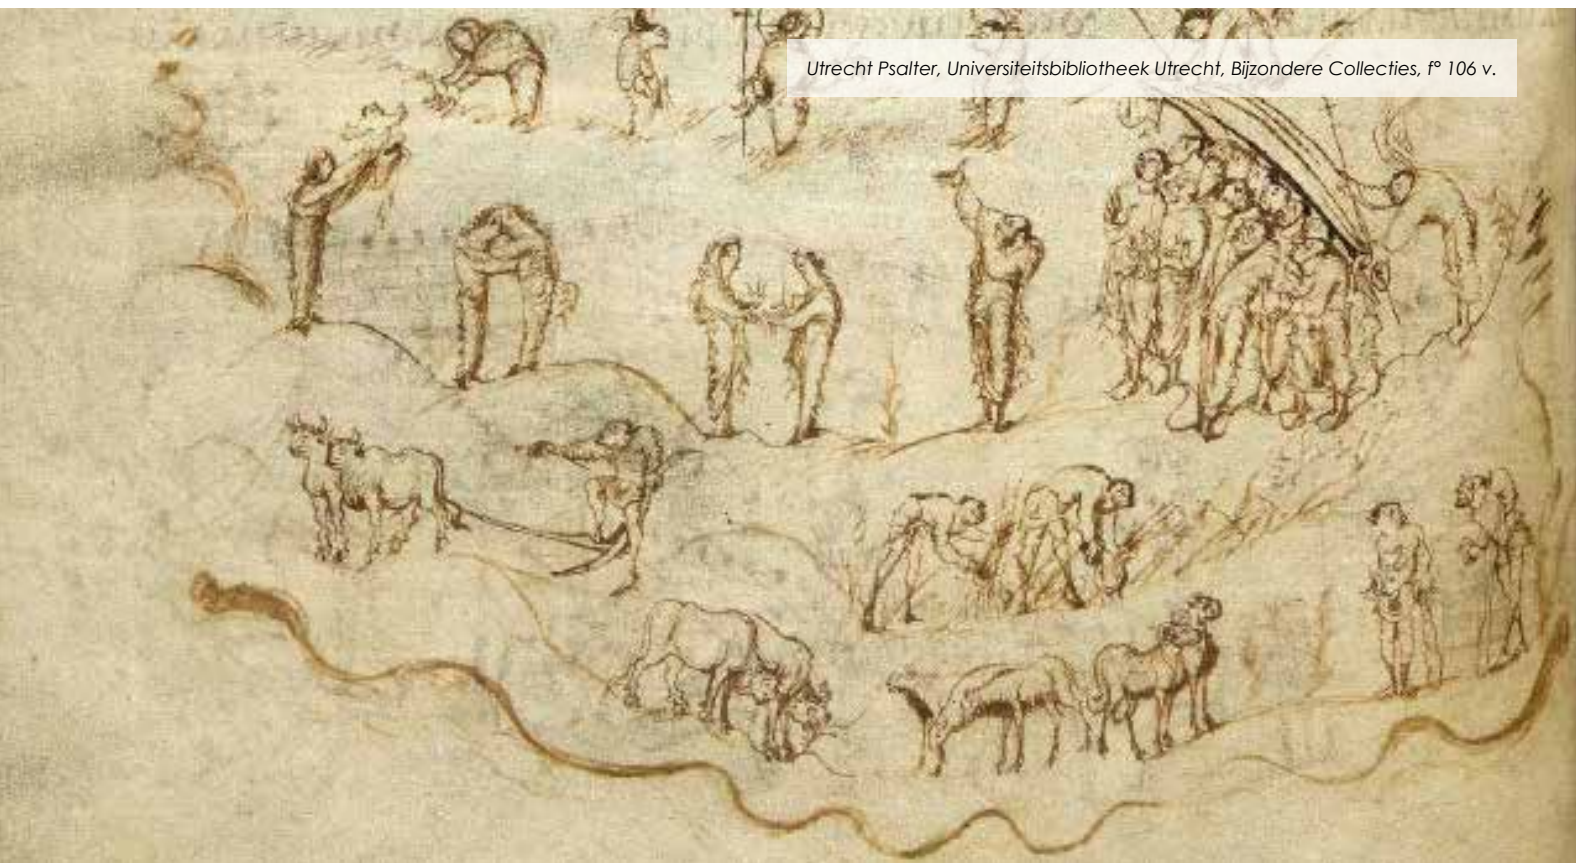 Utrecht Psalter, Universiteitsbibliotheek Utrecht, Bijzondere Collecties, f° 106 v.